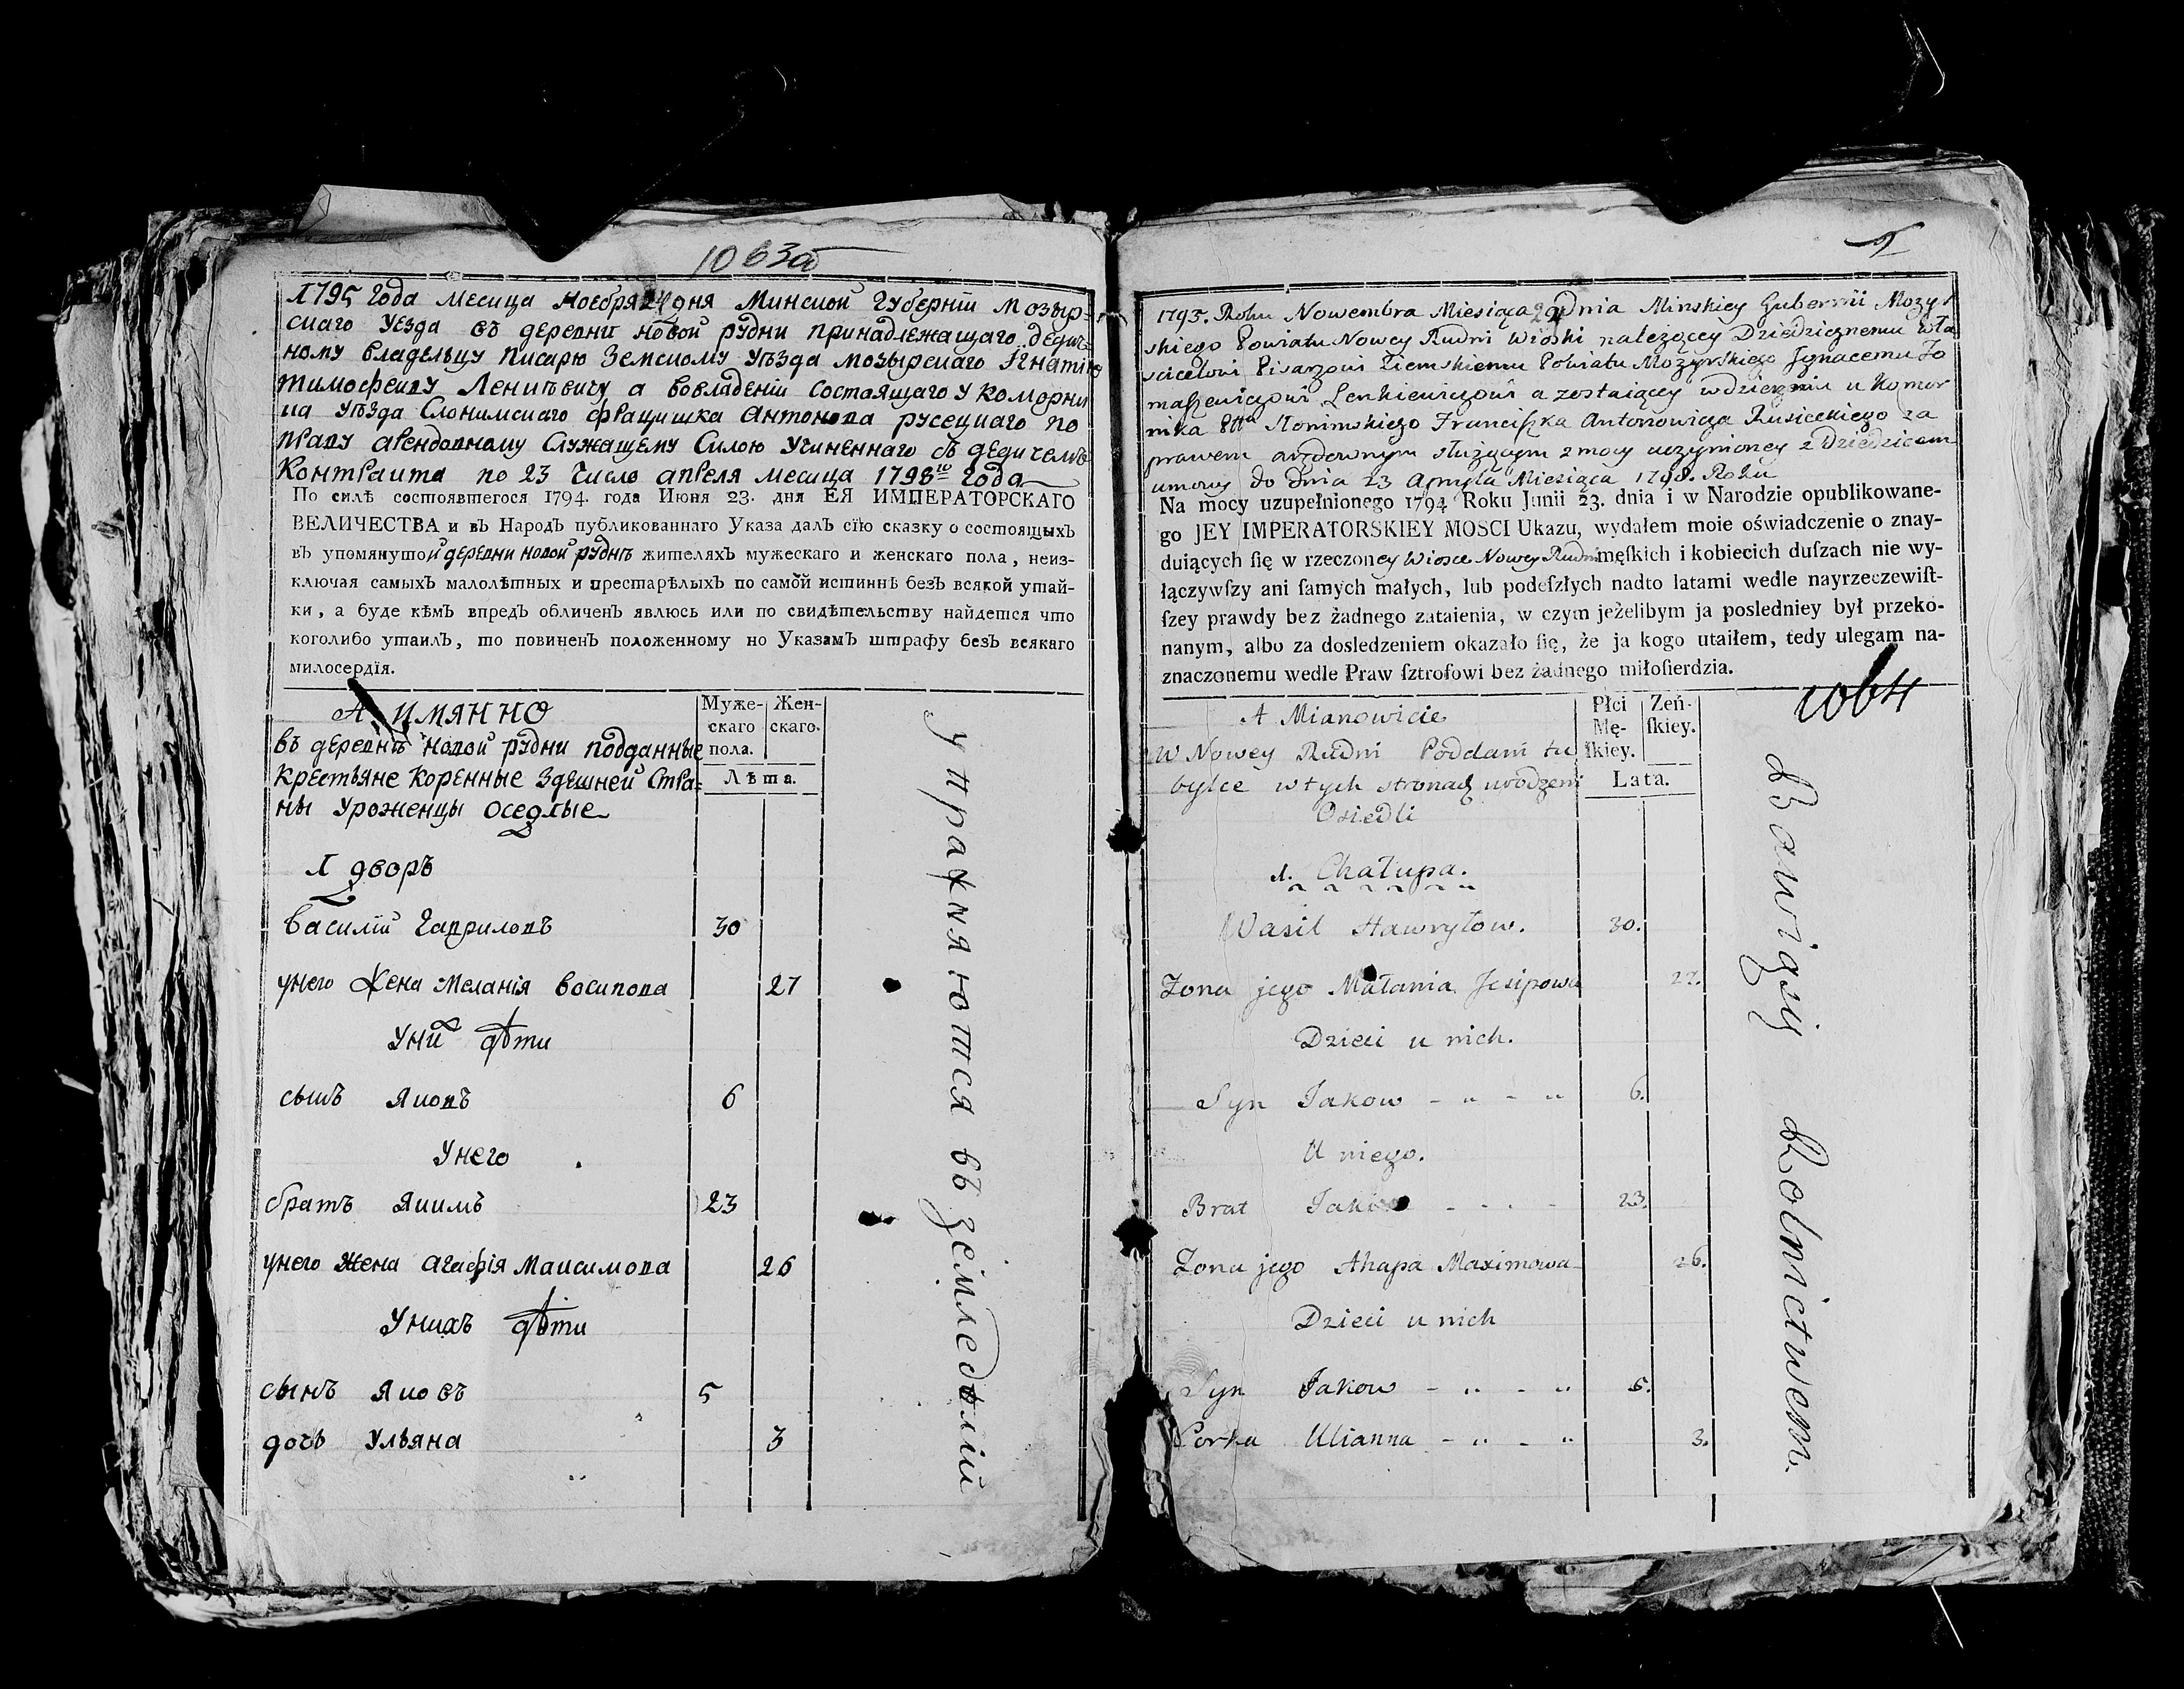 10 63 об
1795 года месица ноебря 24 дня Минской губерніи Мозыр=
скаго уезда въ деревни новой рудни принадлежащаго дедич=
ному владельцу писарю Земскому уѣзда мозырскаго Игнатію
тимофееву Ленкѣвичу а вовладеніи состоящаго у коморни
ка уѣзда Слонимскаго францишка Антонова русецкаго по
праву арендовному служащему силою учиненнаго съ дедичемъ
Контракта по 23 число апреля месяца 1798го года
По силѣ состоявшегося 1794. года Июня 23. дня ЕЯ ИМПЕРАТОРСКАГО
ВЕЛИЧЕСТВА и въ Народъ публикованнаго Указа далъ сїю сказку о состоящыхъ
въ упомянутой деревни новой руднѣ жителяхъ мужескаго и женскаго пола, неиз-
ключая самыхъ малолѣтных и престарѣлыхъ по самой истиннѣ безъ всякой утай-
ки, а буде кѣмъ впредъ обличенъ явлюсь или по свидѣтельству найдется что
коголибо утаилъ, то повиненъ положенному по Указамъ штрафу безъ всякаго
милосердїя.
А имянно
Муже-
скаго
пола.
Жен-
скаго.
Лѣта.
въ деревнѣ новой рудни подданные
крестьяне коренные здешней стра=
ны уроженцы оседлые
1 дворъ
василій гавриловъ 30
унего жена меланія восипова 27
уних дѣти
сынъ яковъ 6
унего
братъ якимъ 23
унего жена агафія максимова 26
унихъ дѣти
сынъ яковъ 5
дочь ульяна 3
упражняются въ земледѣліи
1795. Roku Nowembra Miesiąca 24 Dnia Minskiey Gubernii Mozyr
skiego Powiatu Nowey Rudni Wioski należącey Dziedzicznemu wła
scicelowi Pisarzowi Ziemskiemu Powiatu Mozyrskiego Jgnacemu To
maszewiczowi Lenkiewiczowi a zostaiącey wdzierżeniu u Komor
nika Pttu Słonimskiego Franciszka Antonowicza Rusieckiego za
prawem arędownym służącym z mocy uczynioney z Dziedzicem
umowy do Dnia 23 Apryla Miesiąca 1798. Roku
Na mocy uzupełnionego 1794 Roku Junii 23. dnia i w Narodzie opublikowane-
go JEY IMPERATORSKIEY MOSCI Ukazu, wydałem moie oświadczenie o znay-
duiących się w rzeczoney Wiosce Nowey Rudni męſkich i kobiecich duſzach nie wy-
łączywſzy ani ſamych małych, lub podeſzłych nadto latami wedle nayrzeczewiſt-
ſzey prawdy bez żadnego zataienia, w czym jeżelibym ja posledniey był przeko-
nanym, albo za dosledzeniem okazało ſię, że ja kogo utaiłem, tedy ulegam na-
znaczonemu wedle Praw ſztrofowi bez żadnego miłoſierdzia.
1064
A Mianowicie
Płci
Mę-
ſkiey.
Zeń-
ſkiey.
Lata.
W Nowey Rudni Poddani tu
bylce w tych stronach urodzeni
Osiedli
1. Chałupa.
Wasil Hawryłow. 30.
Zona jego Małania Jesipowa 27.
Dzieci u nich.
Syn Jakow - " - " 6.
U niego.
Brat 23.
Zona jego Ahapa Maximowa 26.
Dzieci u nich
Syn Jakow - " - " 5.
Corka Ulianna - " - " 3.
Bawiący Rolnictwem.